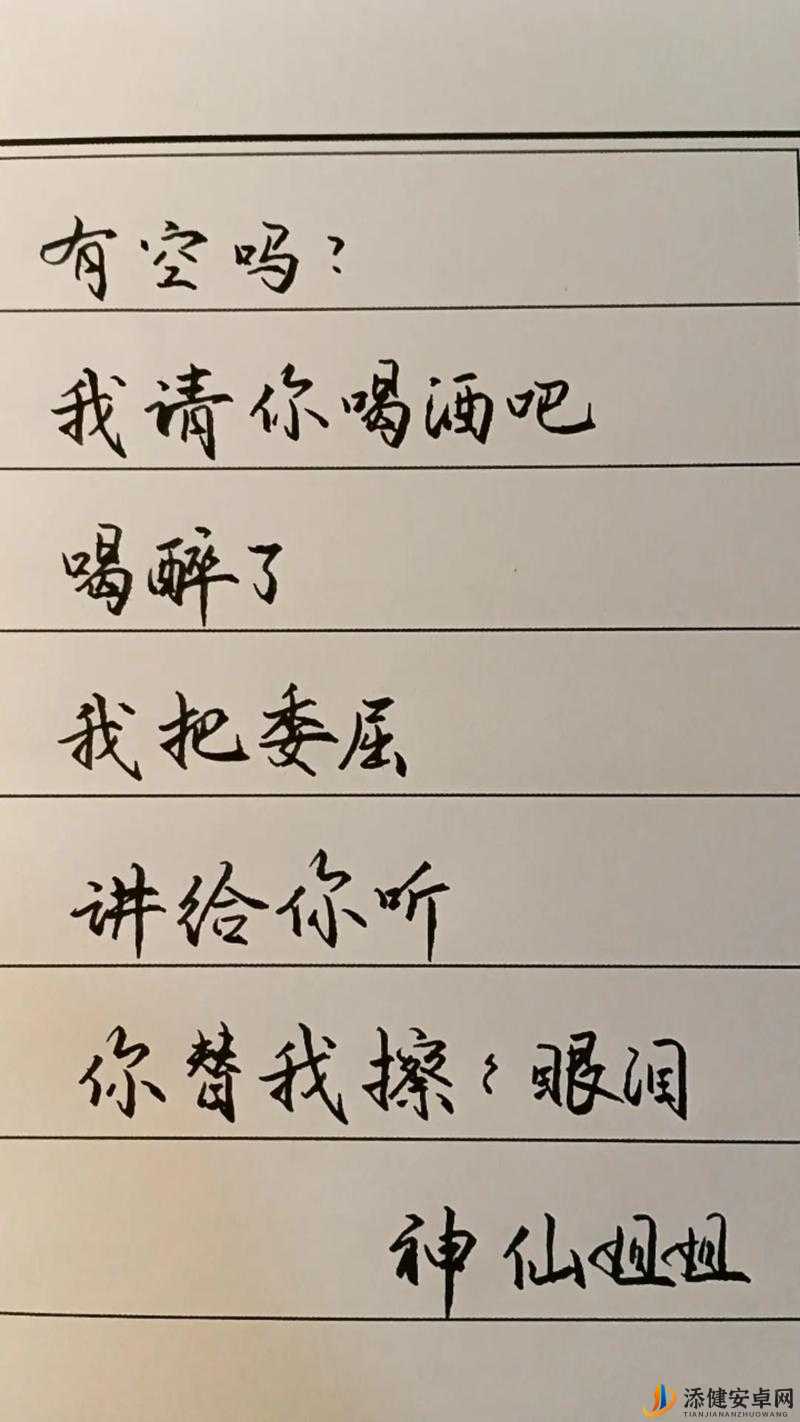 有空吗?
我请你喝酒吧
喝醉了
我把委屈
讲给你听
你替我擦々眼泪
神仙姐姐
添健安卓网
TIANJIANANZHUOWANG